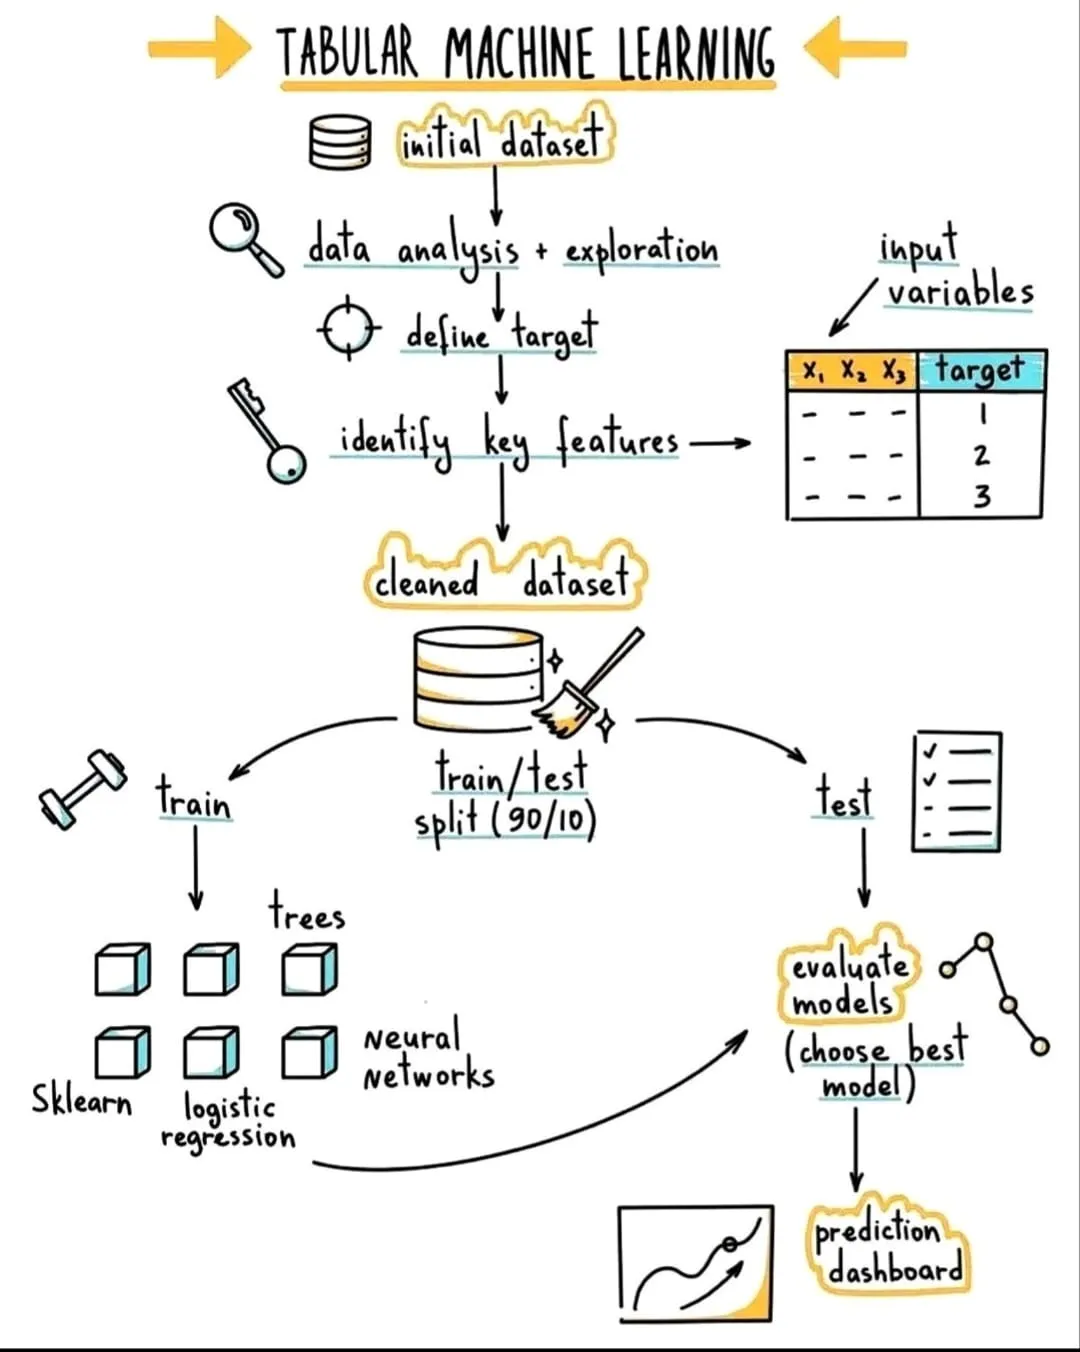 TABULAR MACHINE LEARNING
initial dataset
data analysis + exploration
define target
identify key features
input
variables
x₁ x₂ x₃ target
- - - 1
- - - 2
- - - 3
cleaned dataset
train/test
split (90/10)
train
test
trees
Neural
Networks
Sklearn
logistic
regression
evaluate
models
(choose best
model)
prediction
dashboard